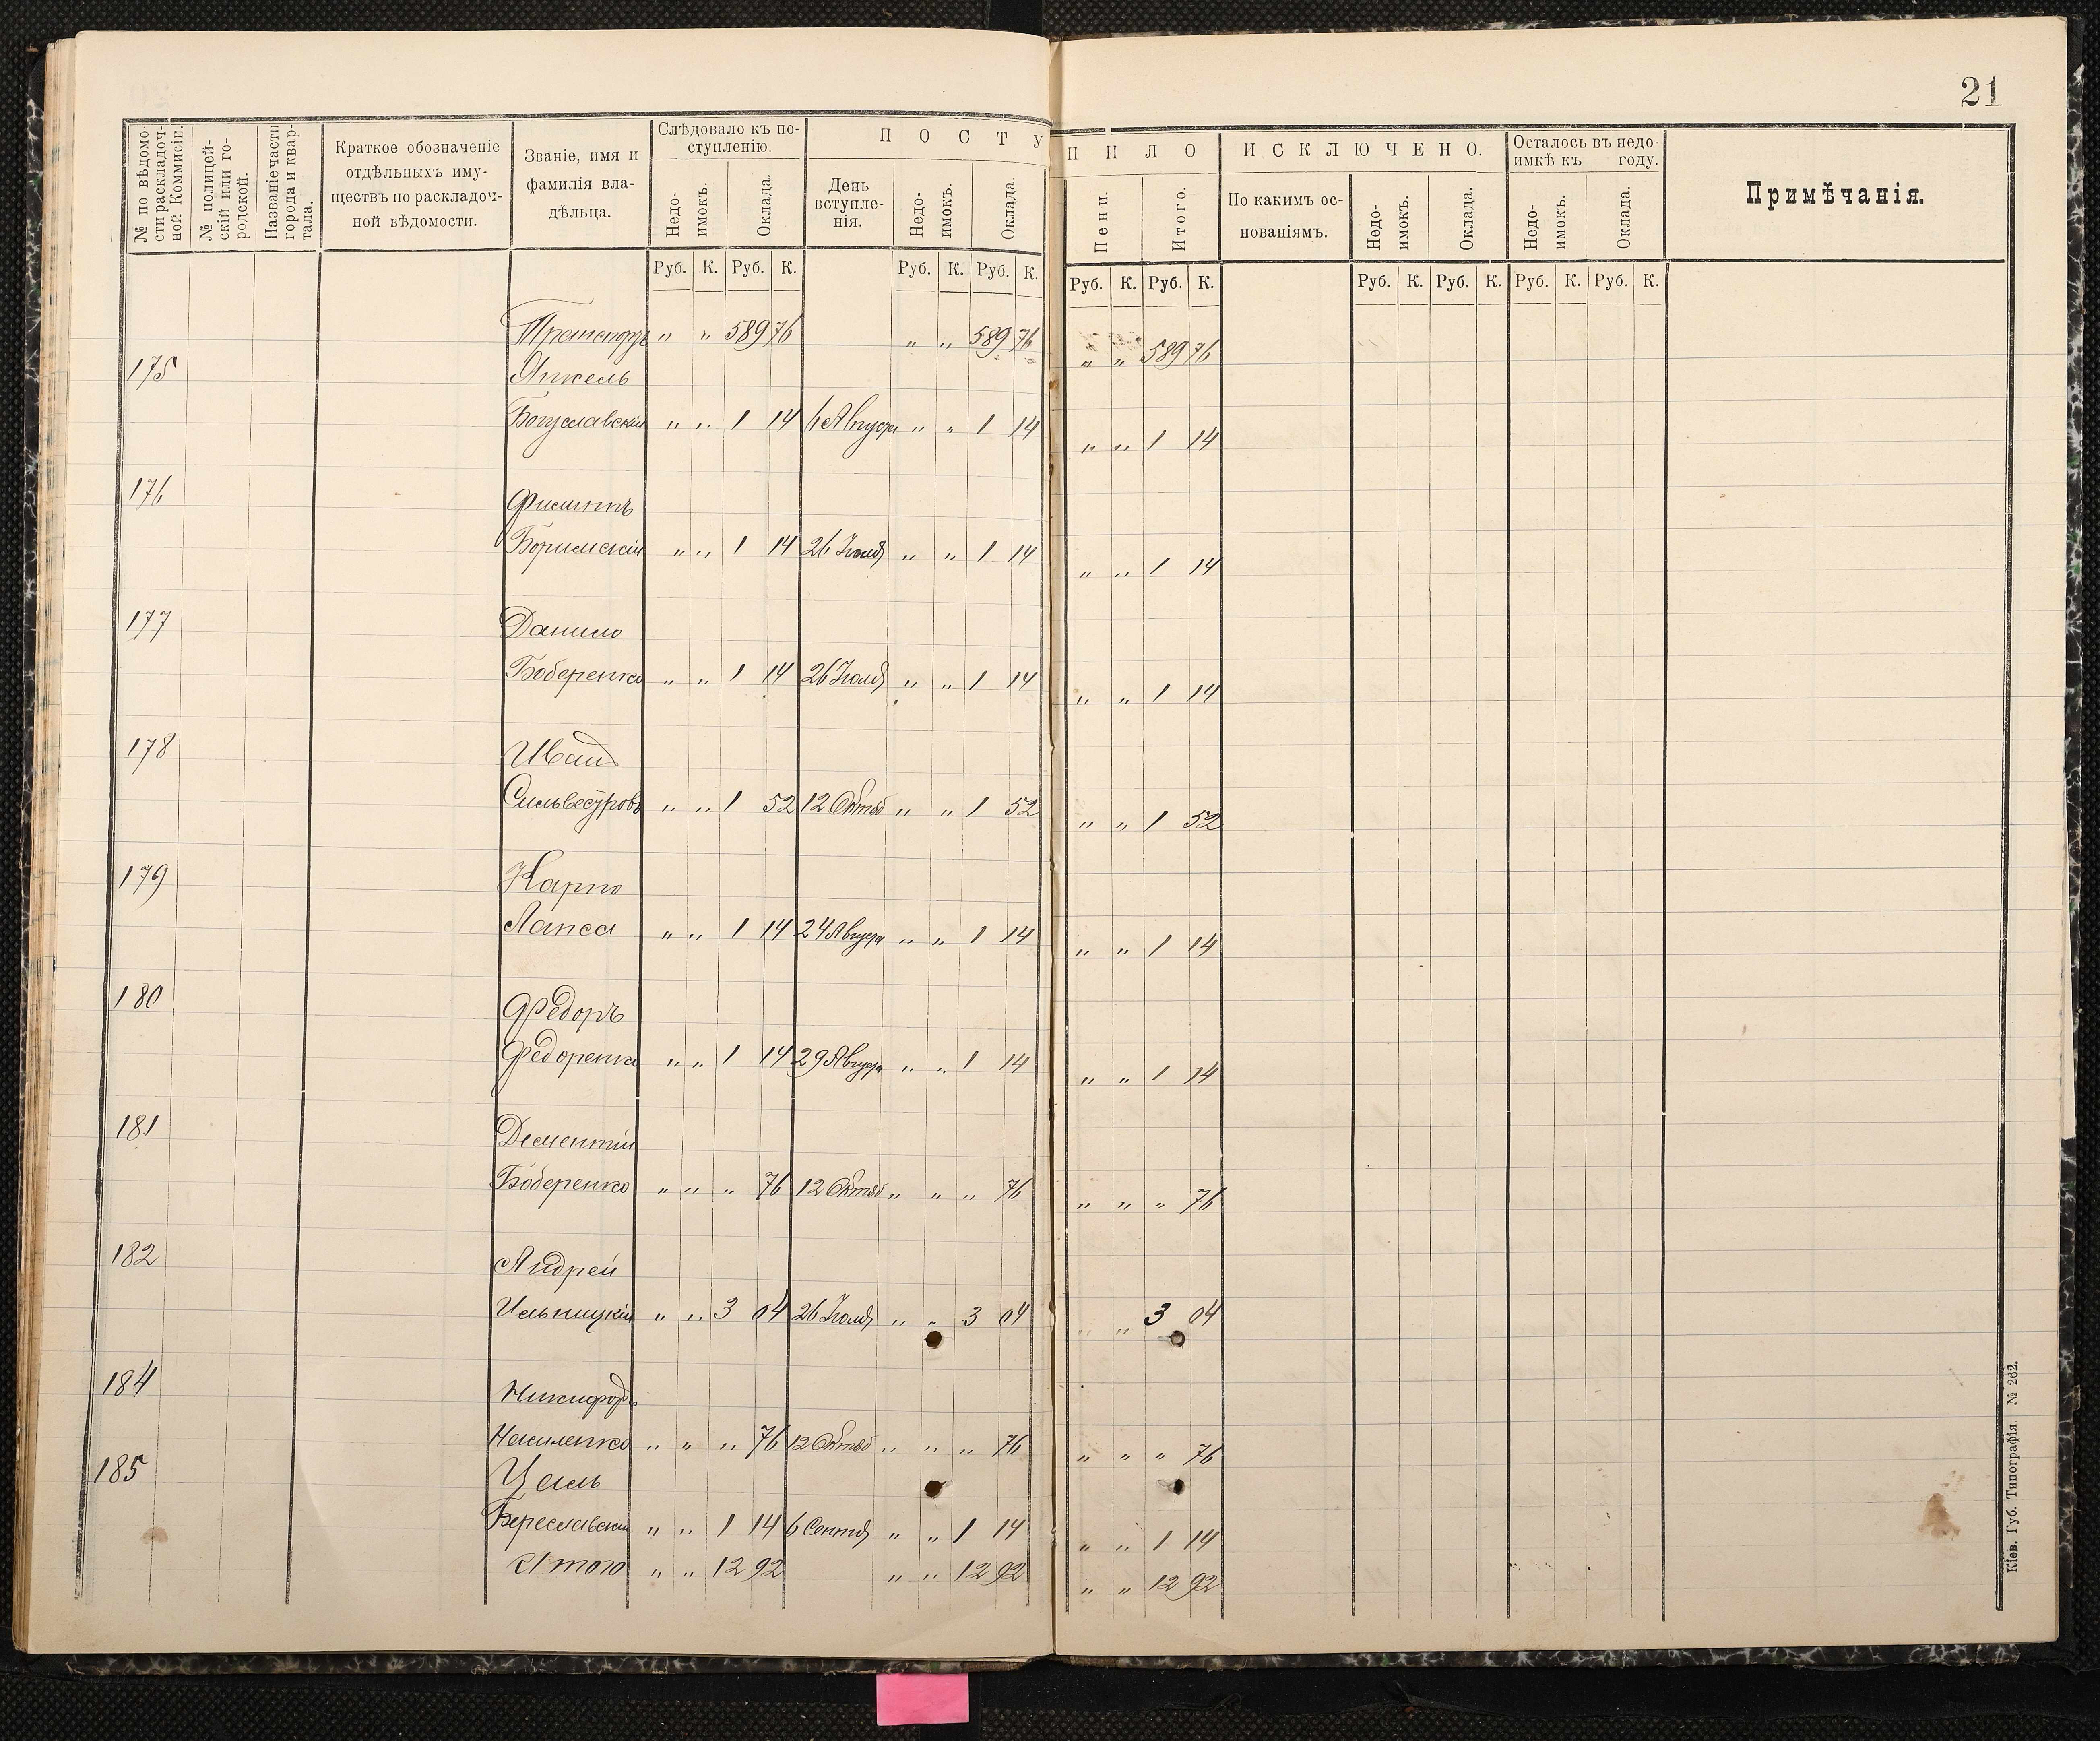 21
№ по вѣдомо-
сти раскладоч-
ной Коммисіи.
№ полицей-
скій или го-
родской.
Названіе части
города и квар-
тала.
Краткое обозначеніе
отдѣльныхъ иму-
ществъ по раскладоч-
ной вѣдомости.
Званіе, имя и
фамилія вла-
дѣльца.
Слѣдовало къ по-
ступленію.
Недо-
имокъ.
Оклада.
П О С Т У П И Л О
День
вступле-
нія.
Недо-
имокъ.
Оклада.
Пени.
Итого.
И С К Л Ю Ч Е Н О.
По какимъ ос-
нованіямъ.
Недо-
имокъ.
Оклада.
Осталось въ недо-
имкѣ къ году.
Недо-
имокъ.
Оклада.
Примѣчанія.
Руб. К. Руб. К. Руб. К. Руб. К. Руб. К. Руб. К. Руб. К. Руб. К. Руб. К. Руб. К.
Транспортъ " " 589 76 " " 589 76 " " 589 76
175 Янкель
Богуславскій " " 1 14 6 Август " " 1 14 " " 1 14
176 Филиппъ
" " 1 14 26 Іюля " " 1 14 " " 1 14
177 Данило
Боберенко " " 1 14 26 Іюля " " 1 14 " " 1 14
178 Иванъ
Сильвестровъ " " 1 52 12 Октяб " " 1 52 " " 1 52
179 Карпо
Лапса " " 1 14 24 Август " " 1 14 " " 1 14
180 Федоръ
Федоренко " " 1 14 29 Август " " 1 14 " " 1 14
181 Дементій
Боберенко " " " 76 12 Октяб " " " 76 " " " 76
182 Андрей
Ильницкій " " 3 04 26 Іюля " " 3 04 " " 3 04
184 Никифоръ
" " " 76 12 Октяб " " " 76 " " " 76
185
Береславскій " " 1 14 6 Сентя " " 1 14 " " 1 14
Итого " " 12 92 " " 12 92 " " 12 92
Кіев. Губ. Типографія. № 262.